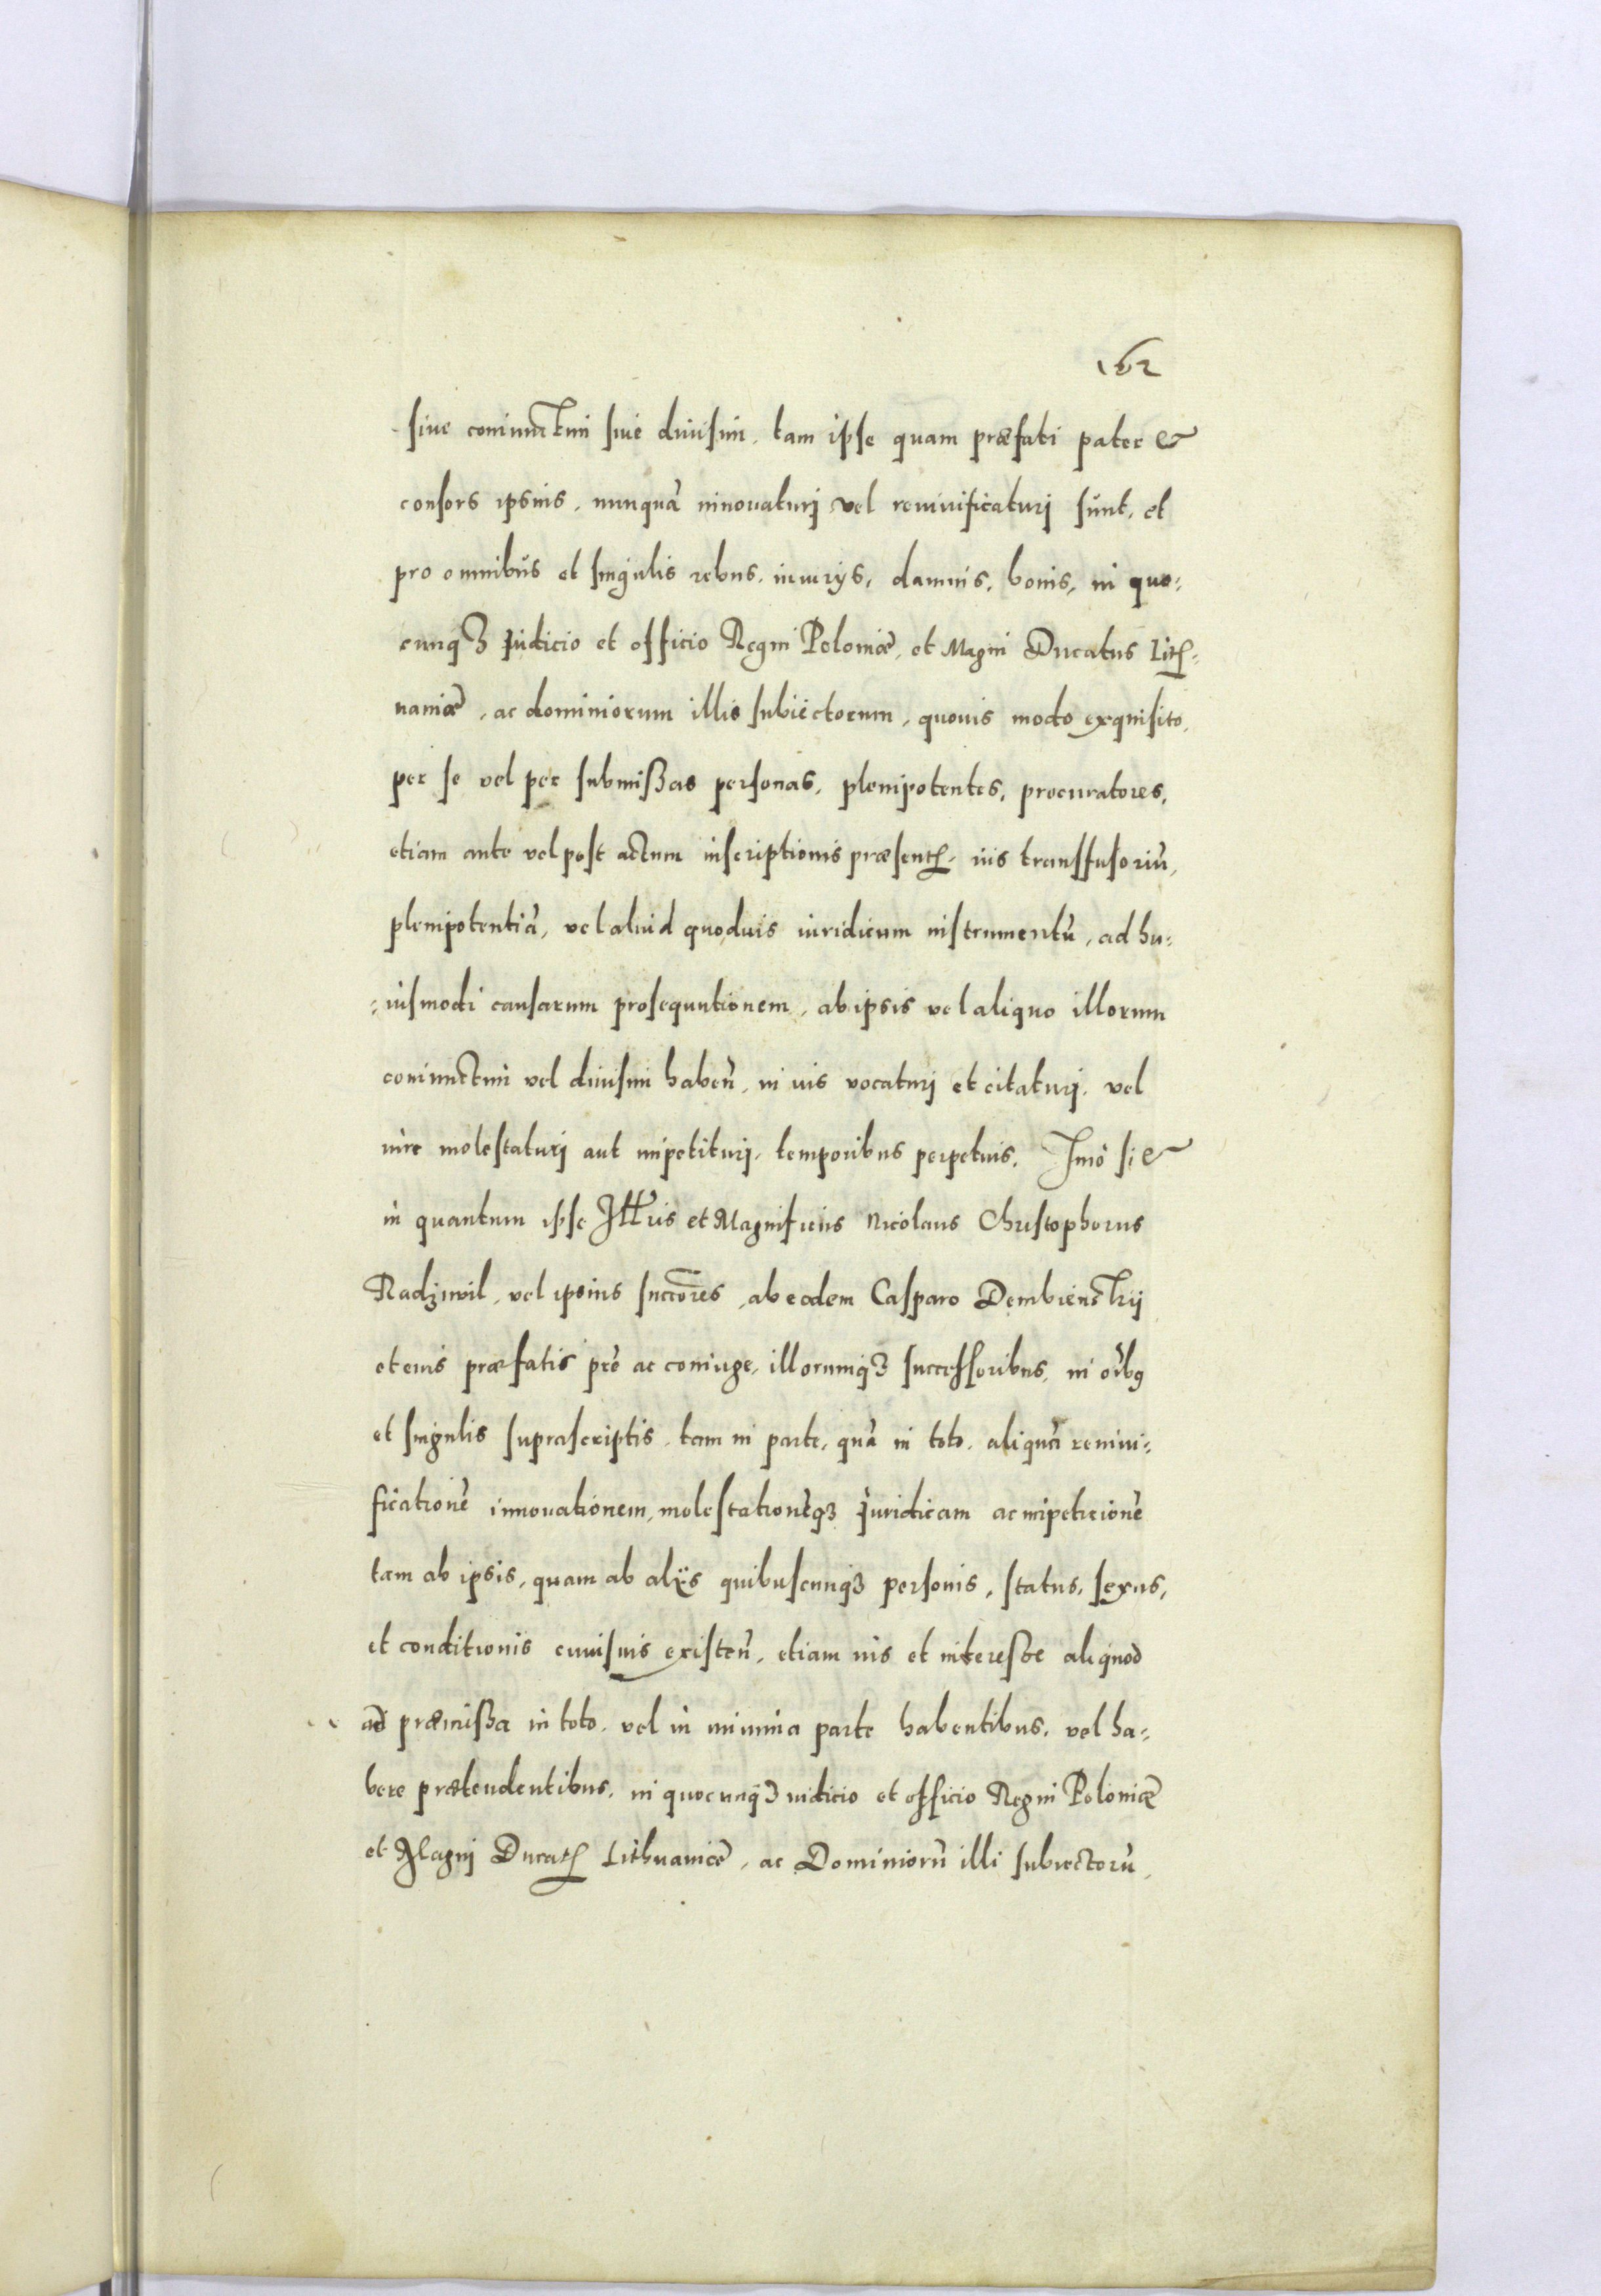 162
siue coniunctim siue diuisim, tam ipse quam præfati pater &
consors ipsius, nunquã innouaturj vel reuiuificaturj sunt, et
pro omnibus et singulis rebus, iniurijs, damnis, bonis, in quo-
cunqꝫ judicio et officio Regni Poloniæ, et Magni Ducatus Litꝭ-
uaniæ, ac dominiorum illis subiectorum, quouis modo exquisito,
per se vel per submißas personas, plenipotentes, procuratores,
etiam ante vel post actum inscriptionis præsentꝭ, ius transfusoriũ,
plenipotentiã, vel aliud quoduis iuridicum instrumentũ, ad hu-
iusmodi causarum prosequutionem, ab ipsis vel aliquo illorum
coniunctim vel diuisim habeñ, in ius vocaturj et citaturj, vel
iure molestaturj aut impetiturj, temporibus perpetuis. Imò si &
in quantum ipse Illris et Magnificus Nicolaus Christophorus
Radziwil, vel ipsius succores, ab eodem Casparo Dembienskij
et eius præfatis pre ac coniuge, illorumqꝫ successoribus, in oibꝯ
et singulis suprascriptis, tam in parte, quã in toto, aliquã reuiui-
ficationẽ innouationem, molestationẽqꝫ juridicam ac impeticionẽ
tam ab ipsis, quam ab alijs quibuscunqꝫ personis, status, sexus,
et conditionis cuiusuis existeñ, etiam ius et interesse aliquod
ad præmißa in toto, vel in minima parte habentibus, vel ha-
bere prætendentibus, in quocunqꝫ iudicio et officio Regni Poloniæ
et Magnj Ducatꝭ Lithuaniæ, ac Dominiorũ illi subiectorũ,